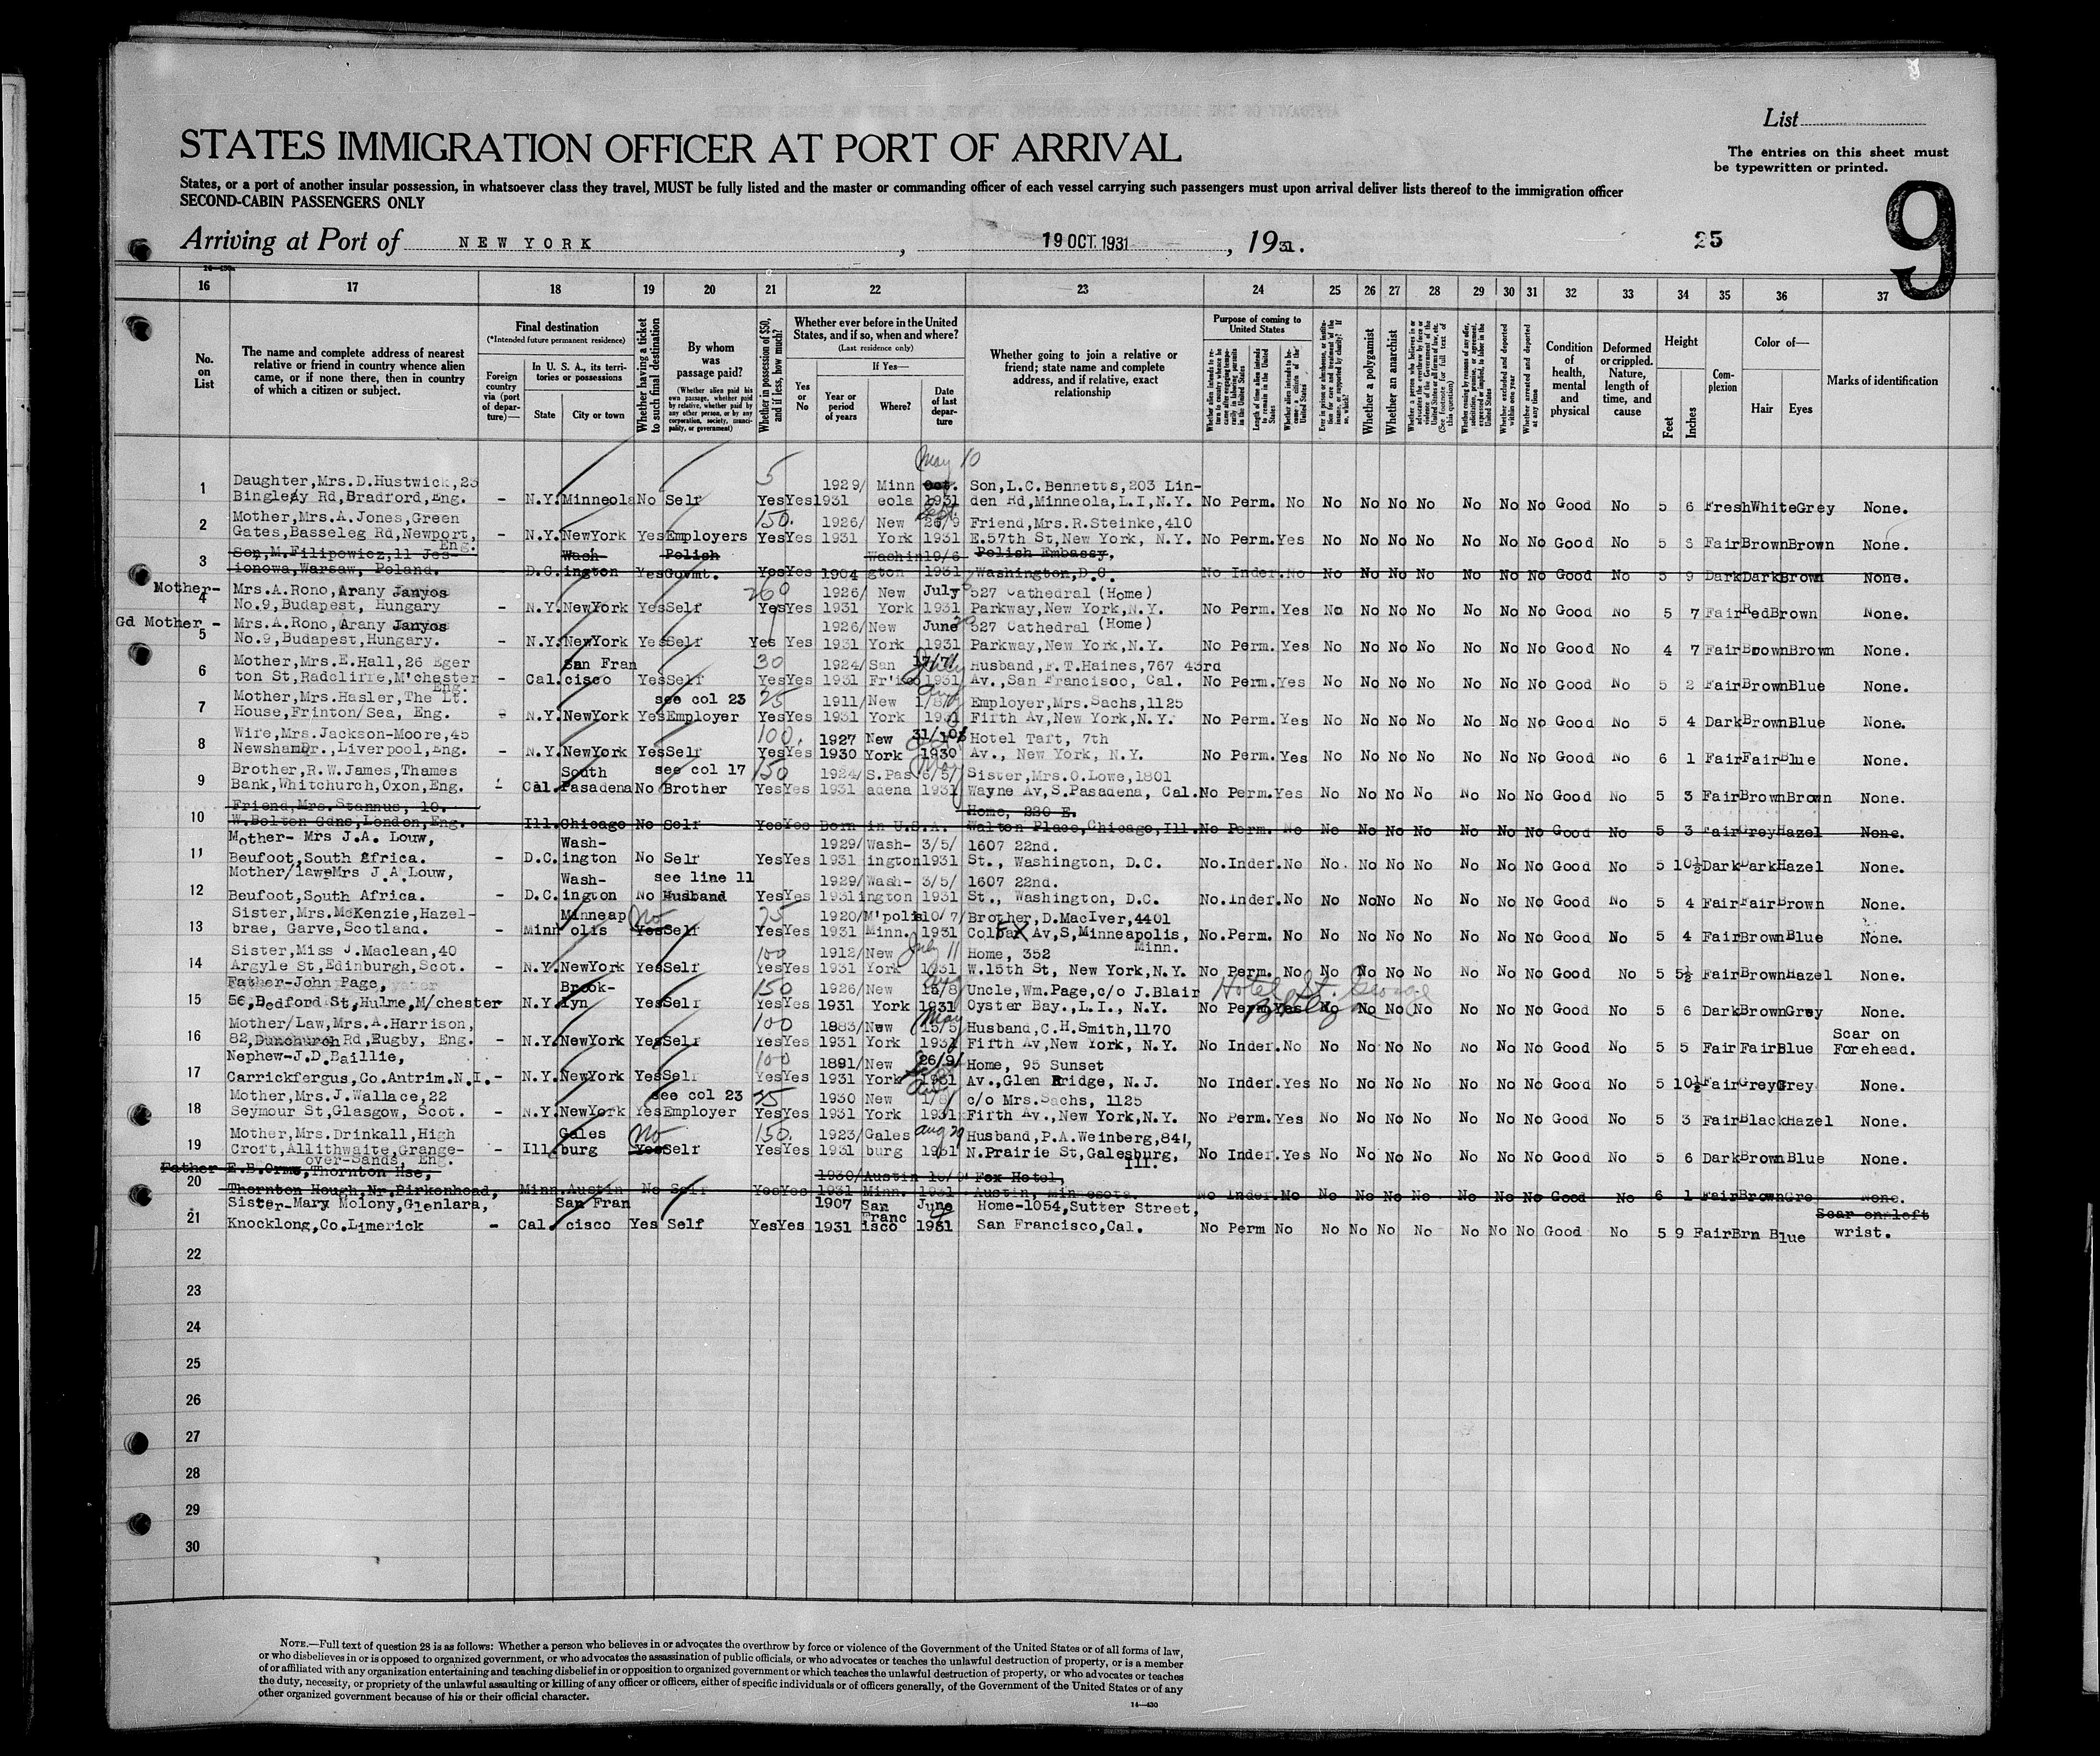 List
The entries on this sheet must
be typewritten or printed.
STATES IMMIGRATION OFFICER AT PORT OF ARRIVAL
States, or a port of another insular possession, in whatsoever class they travel, MUST be fully listed and the master or commanding officer of each vessel carrying such passengers must upon arrival deliver lists thereof to the immigration officer
SECOND-CABIN PASSENGERS ONLY
9
Arriving at Port of NEW YORK, 19 OCT. 1931, 1931. 25
16 17 18 19 20 21 22 23 24 25 26 27 28 29 30 31 32 33 34 35 36 37
No. on List
The name and complete address of nearest relative or friend in country whence alien came, or if none there, then in country of which a citizen or subject.
Final destination
(*Intended future permanent residence)
Foreign country via (port of departure)—
In U. S. A., its territories or possessions
State City or town
Whether having a ticket to such final destination
By whom was passage paid?
(Whether alien paid his own passage, whether paid by relative, whether paid by any other person, or by any corporation, society, municipality, or government)
Whether in possession of $50, and if less, how much?
Whether ever before in the United States, and if so, when and where?
(Last residence only)
Yes or No
If Yes—
Year or period of years Where? Date of last departure
Whether going to join a relative or friend; state name and complete address, and if relative, exact relationship
Purpose of coming to United States
Whether a polygamist
Whether an anarchist
Whether arrested and deported at any time
Condition of health, mental and physical
Deformed or crippled. Nature, length of time, and cause
Height
Feet Inches
Complexion
Color of—
Hair Eyes
Marks of identification
May 10
1 Daughter,Mrs.D.Hustwick,25 5 1929/ Minn Oct. Son,L.C.Bennetts,203 Lin-
Bingley Rd,Bradford,Eng. - N.Y. Minneola No Self Yes Yes 1931 eola 1931 den Rd,Minneola,L.I,N.Y. No Perm. No No No No No No No No Good No 5 6 Fresh White Grey None.
2 Mother,Mrs.A.Jones,Green 150. 1926/ New 26/9 Friend,Mrs.R.Steinke,410
Gates,Basseleg Rd,Newport, - N.Y. NewYork Yes Employers Yes Yes 1931 York 1931 E.57th St,New York, N.Y. No Perm. Yes No No No No No No No Good No 5 5 Fair Brown Brown None.
Eng.
3 Son,M.Filipowicz,11 Jes- Wash- Polish Washin 19/6 Polish Embassy.
ionowa,Warsaw, Poland. - D.C. ington Yes Govmt. Yes Yes 1904 gton 1931 Washington,D.C. No Inder. No No No No No No No No Good No 5 9 Dark Dark Brown None.
Mother-
4 Mrs.A.Rono,Arany Janyos 260 1926/ New July 527 Cathedral (Home)
No.9,Budapest, Hungary - N.Y. NewYork Yes Self Yes Yes 1931 York 1931 Parkway,New York,N.Y. No Perm. Yes No No No No No No No Good No 5 7 Fair Red Brown None.
Gd Mother -
5 Mrs.A.Rono,Arany Janyos 1926/ New June 527 Cathedral (Home)
No.9,Budapest,Hungary. - N.Y. NewYork Yes Self Yes Yes 1931 York 1931 Parkway,New York,N.Y. No Perm. Yes No No No No No No No Good No 4 7 Fair Brown Brown None.
6 Mother,Mrs.E.Hall,26 Eger San Fran 30 1924/ San 17/7/ Husband,F.T.Haines,767 43rd
ton St,Radcliffe,M'chester - Cal. cisso Yes Self Yes Yes 1931 Fr'isco 1931 Av.,San Francisco, Cal. No Perm. Yes No No No No No No No Good No 5 2 Fair Brown Blue None.
Eng.
7 Mother,Mrs.Hasler,The Lt. see col 23 25 1911/ New 1/8/ Employer,Mrs.Sachs,1125
House,Frinton/Sea, Eng. - N.Y. NewYork Yes Employer Yes Yes 1931 York 1931 Fifth Av,New York,N.Y. No Perm. Yes No No No No No No No Good No 5 4 Dark Brown Blue None.
8 Wife,Mrs.Jackson-Moore,45 100. 1927 New 31/10/ Hotel Taft, 7th
NewshamDr.,Liverpool,Eng. - N.Y. NewYork Yes Self Yes Yes 1930 York 1930 Av., New York, N.Y. No Perm. Yes No No No No No No No Good No 6 1 Fair Fair Blue None.
9 Brother,R.W.James,Thames South see col 17 150 1924/ S.Pas 6/5/ Sister,Mrs.O.Lowe,1801
Bank,Whitchurch,Oxon,Eng. - Cal. Pasadena No Brother Yes Yes 1931 adena 1931 Wayne Av,S.Pasadena, Cal. No Perm. Yes No No No No No No No Good No 5 3 Fair Brown Brown None.
10 Friend,Mrs.Stannus, 10. Home, 220 E.
W.Bolton Gdns,London,Eng. - Ill. Chicago No Self Yes Yes Born in U.S.A. Walton Place,Chicago,Ill. No Perm. No No No No No No No No Good No 5 3 Fair Grey Hazel None.
11 Mother- Mrs J.A. Louw, Wash- 1929/ Wash- 3/5/ 1607 22nd.
Beufoot,South Africa. - D.C. ington No Self Yes Yes 1931 ington 1931 St., Washington, D.C. No. Inder. No No No No No No No No Good No 5 10½ Dark Dark Hazel None.
12 Mother/law-Mrs J.A.Louw, Wash- see line 11 1929/ Wash- 3/5/ 1607 22nd.
Beufoot,South Africa. - D.C. ington No Husband Yes Yes 1931 ington 1931 St., Washington, D.C. No. Inder. No No No No No No No No Good No 5 4 Fair Fair Brown None.
13 Sister,Mrs.McKenzie,Hazel- Minneap No 75 1920/ M'polis 10/7/ Brother,D.MacIver,4401
brae, Garve,Scotland. - Minn olis Yes Self Yes Yes 1931 Minn. 1931 Colfax Av,S,Minneapolis, No. Perm. No No No No No No No No Good No 5 4 Fair Brown Blue None.
Minn.
14 Sister,Miss J.Maclean,40 100 1912/ New July 11 Home, 352
Argyle St,Edinburgh,Scot. - N.Y. NewYork Yes Self Yes Yes 1931 York 1931 W.15th St, New York,N.Y. No Perm. No No No No No No No No Good No 5 5½ Fair Brown Hazel None.
15 Father-John Page, Brook- 150 1926/ New 15/8/ Uncle,Wm.Page,c/o J.Blair Hotel St. George
56,Bedford St,Hulme,M/chester N.Y. lyn Yes Self Yes Yes 1931 York 1931 Oyster Bay.,L.I., N.Y. No Perm Yes No No No No No No No Good No 5 6 Dark Brown Grey None.
16 Mother/Law,Mrs.A.Harrison, 100 1883/ New May 15/5/ Husband,C.H.Smith,1170 Scar on
82,Dunchurch Rd,Rugby, Eng. - N.Y. NewYork Yes Self Yes Yes 1931 York 1931 Fifth Av,New York, N.Y. No Inder. No No No No No No No No Good No 5 5 Fair Fair Blue Forehead.
17 Nephew-J.D.Baillie, 100 1891/ New 26/9/ Home, 95 Sunset
Carrickfergus,Co.Antrim.N.I.- N.Y. NewYork Yes Self Yes Yes 1931 York 1931 Av.,Glen Ridge, N.J. No Inder. Yes No No No No No No No Good No 5 10½ Fair Grey Grey None.
18 Mother,Mrs.J.Wallace,22 see col 23 25 1930 New 1/8/ c/o Mrs.Sachs, 1125
Seymour St,Glasgow, Scot. - N.Y. NewYork Yes Employer Yes Yes 1931 York 1931 Fifth Av.,New York,N.Y. No Perm. Yes No No No No No No No Good No 5 3 Fair Black Hazel None.
19 Mother,Mrs.Drinkall, High Gales No 150. 1923/ Gales Aug 29 Husband,P.A.Weinberg,841,
Croft,Allithwaite,Grange- - Ill. burg Yes Self Yes Yes 1931 burg 1931 N.Prairie St,Galesburg, No Inder. Yes No No No No No No No Good No 5 6 Dark Brown Blue None.
over-Sands, Eng. Ill.
20 Father E.B.Orme,Thornton Hse, 1930/ Austin 10/9/ Fox Hotel,
Thornton Hough,Nr.Birkenhead, Minn. Austin No Self Yes Yes 1931 Minn. 1931 Austin, Minnesota. No Inder. No No No No No No No No Good No 6 1 Fair Brown Gre None.
21 Sister-Mary Molony,Glenlara, San Fran 1907 San June Home-1054,Sutter Street, Scar on left
Knocklong,Co.Limerick - Cal. cisco Yes Self Yes Yes 1931 Francisco 1931 San Francisco,Cal. No Perm No No No No No No No No Good No 5 9 Fair Brn Blue wrist.
22
23
24
25
26
27
28
29
30
NOTE.—Full text of question 28 is as follows: Whether a person who believes in or advocates the overthrow by force or violence of the Government of the United States or of all forms of law,
or who disbelieves in or is opposed to organized government, or who advocates the assassination of public officials, or who advocates or teaches the unlawful destruction of property, or is a member
of or affiliated with any organization entertaining and teaching disbelief in or opposition to organized government or which teaches the unlawful destruction of property, or who advocates or teaches
the duty, necessity, or propriety of the unlawful assaulting or killing of any officer or officers, either of specific individuals or of officers generally, of the Government of the United States or of any
other organized government because of his or their official character.
14—430